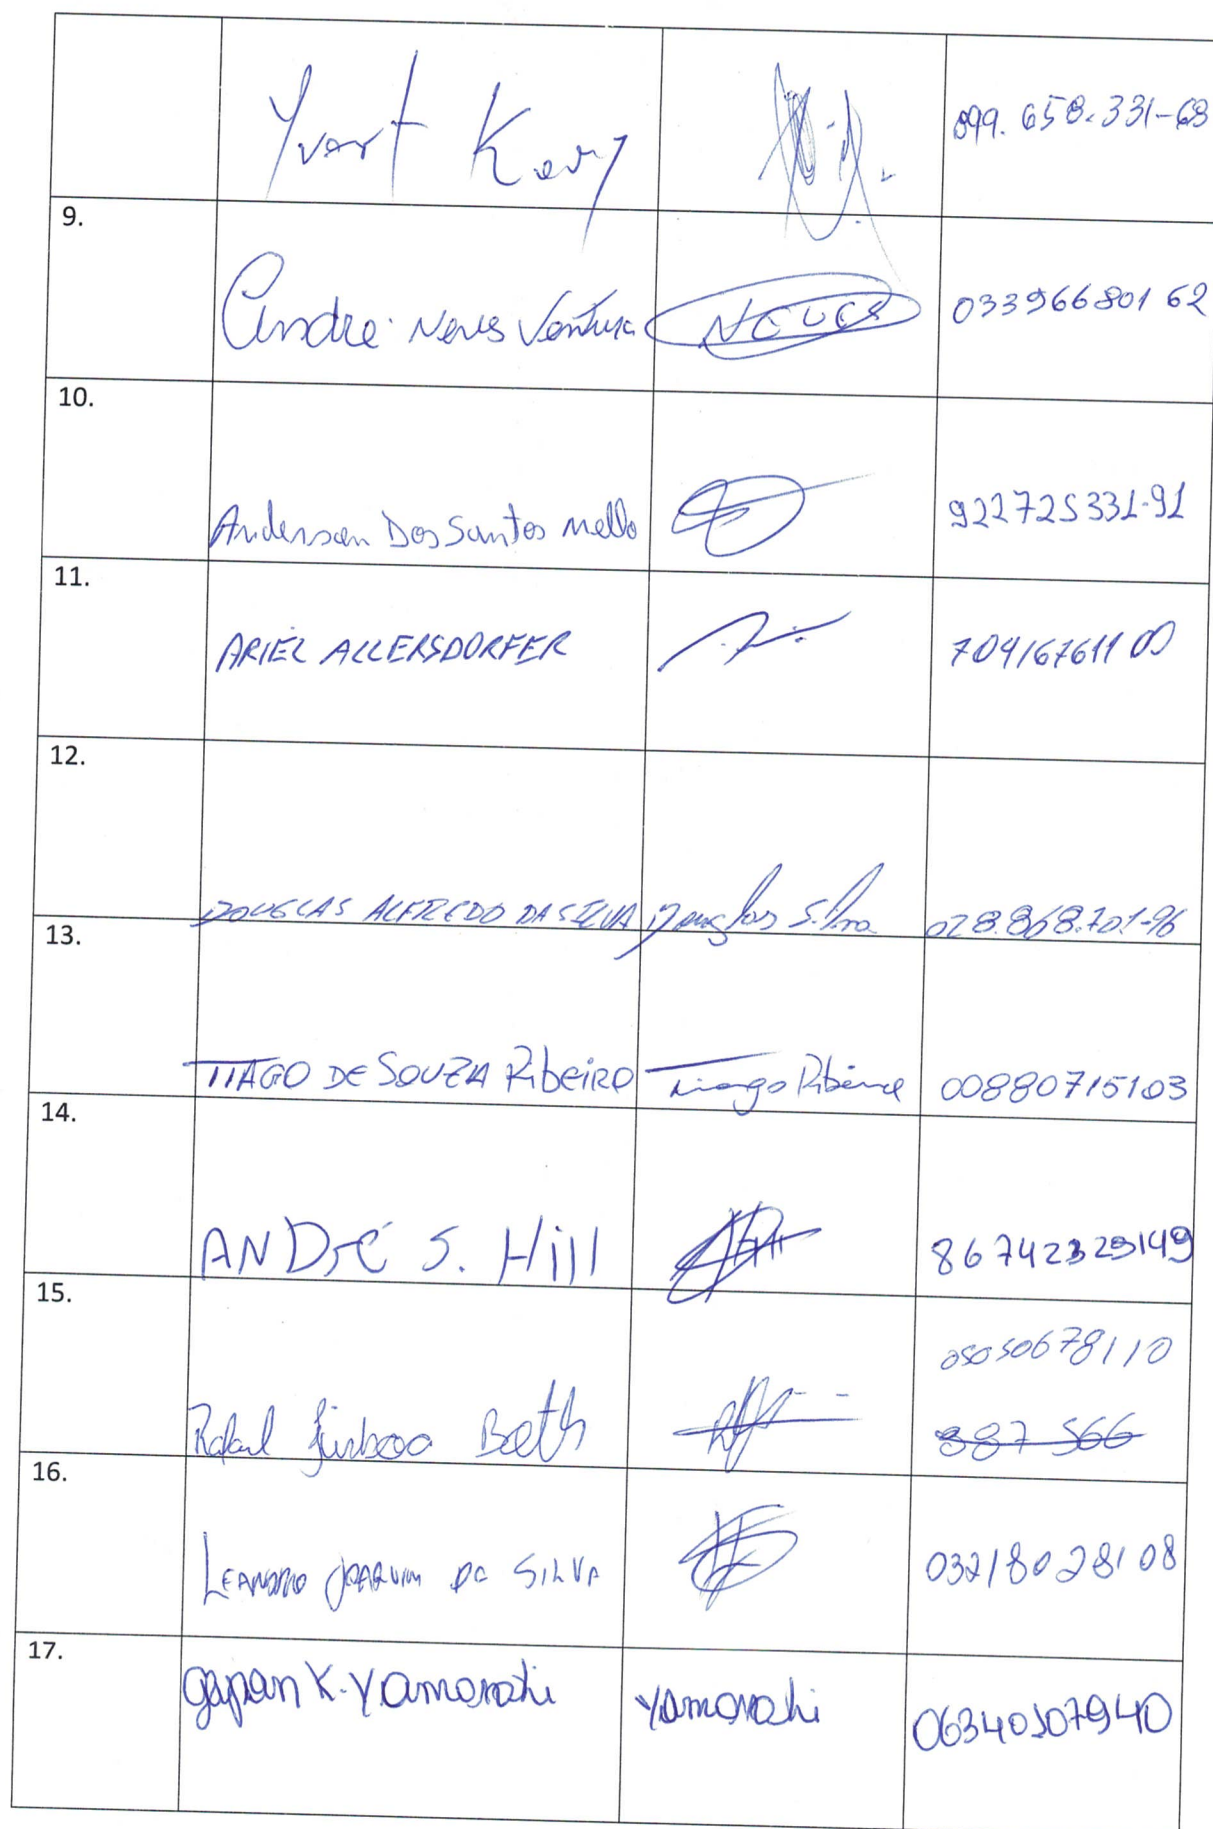 Yvart Kery 899.658.331-68
9.
Andre Neves Ventura Neves 033966801 62
10.
Anderson Dos Santos mello 922725331-91
11.
ARIEL ALLERSDORFER 70416761100
12.
DOUGLAS ALFREDO DA SILVA Douglas Silva 028.868.701-96
13.
TIAGO DE SOUZA RibeiRO Tiago Ribeiro 00880715103
14.
ANDré S. Hill 86742329149
15.
05050678110
Rafael Barth 887 566
16.
LEANDRO JOAQUIM DA SILVA 03218028108
17.
gapan K. Yamovahi Yamovahi 06340507940